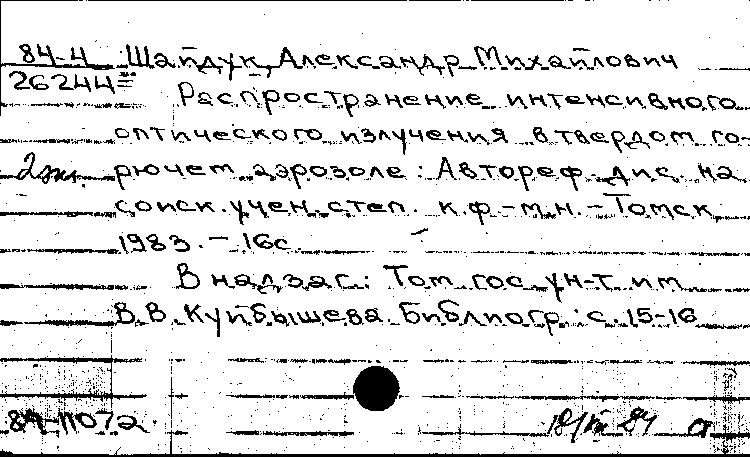 84-4 Шайдук, Александр Михайлович
26244
Распространение интенсивного
оптического излучения в твердом го-
2 экз. рючем аэрозоле: Автореф. дис. на
соиск. учен. степ. к.ф.-м.н. – Томск,
1983. – 16 с.
В надзаг.: Том. гос. ун-т им.
В.В. Куйбышева. Библиогр.: с. 15-16
84-11072. 18/VIII 84